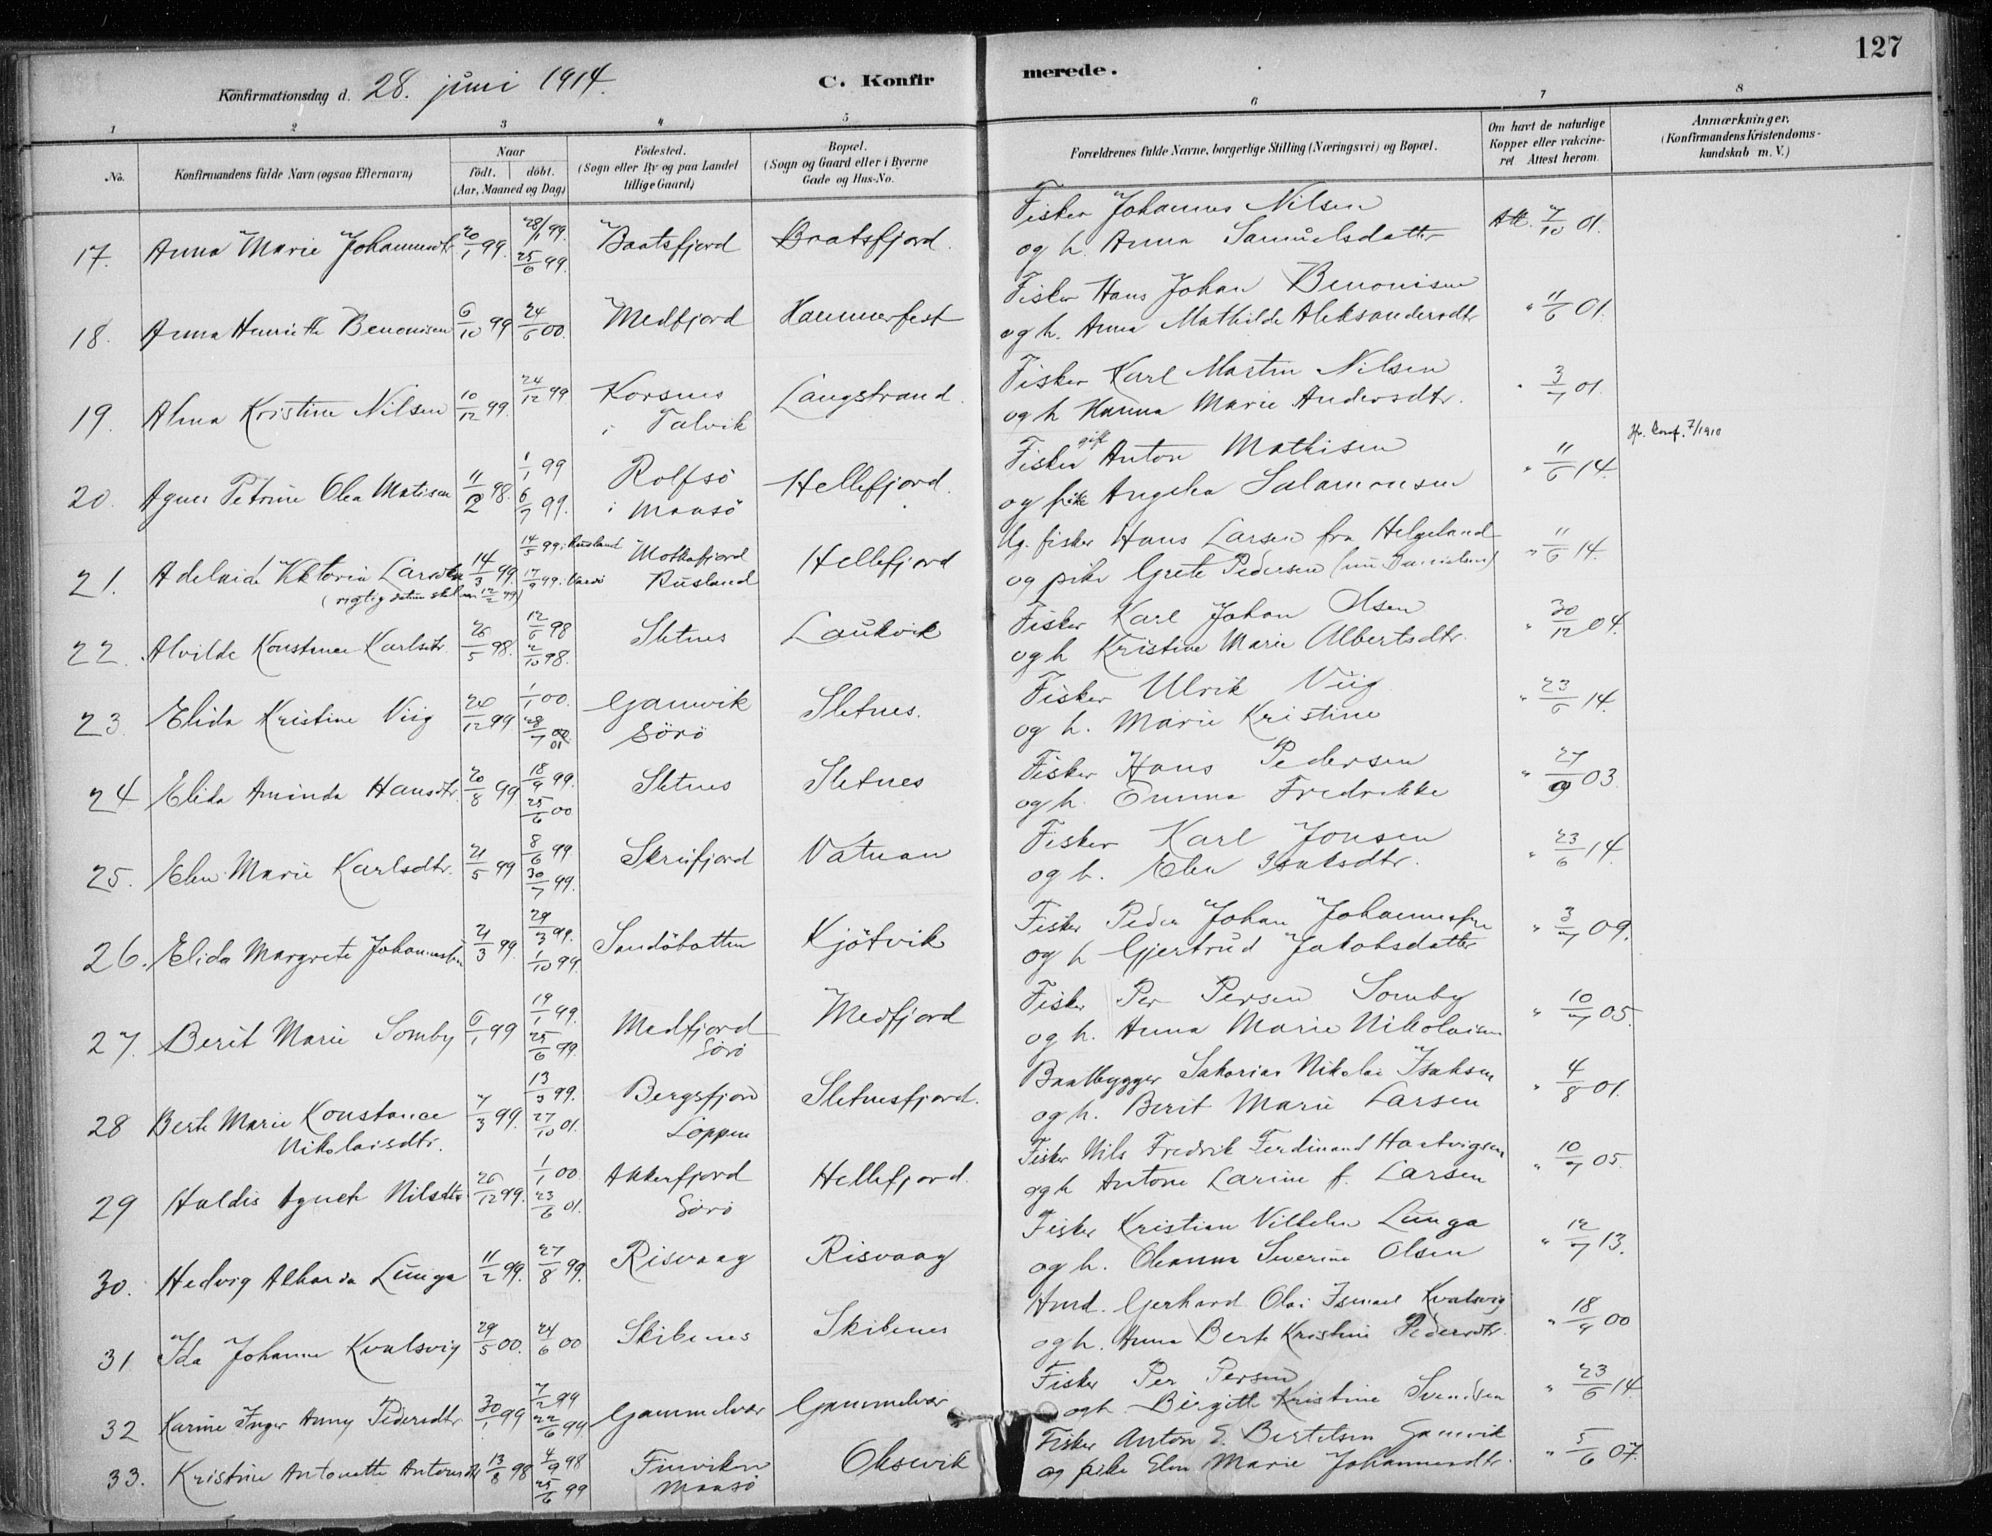 127
Konfirmationsdag d. 28. juni 1914. C. Konfir merede.
1 2 3 4 5 6 7 8
No. Konfirmandens fulde Navn (ogsaa Efternavn) Naar født. døbt. (Aar, Maaned og Dag) Fødested. (Sogn eller By og paa Landet tillige Gaard) Bopæl. (Sogn og Gaard eller i Byerne Gade og Hus-No. Forældrenes fulde Navne, borgerlige Stilling (Næringsvei) og Bopæl. Om havt de naturlige Kopper eller vakcineret Attest herom. Anmærkninger. (Konfirmandens Kristendomskundskab m. V.)
Fisker Johannes Nilsen
17. Anna Marie Johannesdtr 20/1 99. 28/1 99. 25/6 99. Baatsfjord Baatsfjord. og h. Anna Samuelsdatter Att. 7/10 01.
Fisker Hans Johan Benonisen
18. Anna Henriette Benonisen 6/10 99 24/6 00. Medfjord Hammerfest og h. Anna Mathilde Aleksandersdtr " 11/6 01.
Fisker Karl Martin Nilsen
19. Alma Kristine Nilsen 10/12 99. 24/12 99 Korsnes i Talvik Langstrand. og h Hanna Marie Andersdtr. " 3/7 01.
Fisker gift Anton Mathisen
20. Agnes Petrine Olea Matisen 11/2 98. 1/1 99 6/7 99. Rolfsö i Maasö Hellefjord. og pike Angelia Salamonsen " 11/6 14.
Ug. fisker Hans Larsen fra Helgeland
21. Adelaide Viktoria Larsen 14/3 99. 14/5 99 i Rusland 17/9 99 i Vardö Motkafjord Rusland Hellefjord og pike Grete Pedersen " 11/6 14.
Fisker Karl Johan Olsen
22. Alvilde Konstance Karlsdtr. 26/5 98. 12/6 98 2/10 98. Sletnes Laukvik og h Kristine Marie Albertsdtr. " 30/12 04.
Fisker Ulrik Viig
23 Elida Kristine Viig 20/12 99 1/1 00. 28/7 01 Gamvik Sörö Sletnes. og h. Marie Kristine " 23/6 14.
Fisker Hans Pedersen
24 Elida Aminda Hansdtr. 20/8 99 18/9 99. 25/6 00 Sletnes Sletnes og h. Emma Fredrikke " 27/9 03.
Fisker Karl Jonsen
25. Elen Marie Karlsdtr. 21/5 99 8/6 99 30/7 99. Skreifjord Vatnan og h. Elen Isaksdtr. " 23/6 14.
Fisker Peder Johan Johannesen
26. Elida Margrete Johannesen 21/3 99. 29/3 99. 1/10 99. Sandöbotten Kjötvik og h Gjertrud Jakobsdatter " 3/7 09.
Fisker Per Persen Somby
27. Berit Marie Somby 6/1 99 19/1 99. 25/6 99. Medfjord Sörö Medfjord og h. Anna Marie Nikolaisen " 10/7 05.
Baatbygger Sakarias Nikolai Isaksen
28 Berte Marie Konstance Nikolaisdtr. 7/3 99. 13/3 99. 27/10 01. Bergsfjord Loppen Sletnesfjord. og h. Berit Marie Larsen " 4/8 01.
Fisker Nils Fredrik Ferdinand Hartvigsen
29 Haldis Agnete Nilsdtr 26/12 99. 1/1 00 23/6 01. Akkerfjord Sörö Hellefjord. og h Antone Larine f. Larsen " 10/7 05.
Fisker Kristian Vilhelm Lunga
30. Hedvig Albarda Lunga 11/2 99. 27/8 99. Risvaag Risvaag og h. Oleanna Severine Olsen " 12/7 13.
Hmd. Gerhard Olai Ismael Kvalsvig
31 Ida Johanne Kvalsvig 29/5 00. 24/6 00 Skibenes Skibenes og h. Anna Berte Kristine Pedersdtr. " 18/9 00
Fisker Per Persen
32 Karine Inger Anny Pedersdtr 30/1 99 7/2 99 22/6 99 Gammelvær Gammelvær og h. Birgitte Kristine Svendsen " 23/6 14.
Fisker Anton E. Bertelsen Gamvik
33. Kristine Antonette Antonsdtr. 13/8 98 4/9 98 25/6 99 Finviken Maasö Oksevik og pike Elen Marie Johannesdtr. " 5/6 07.